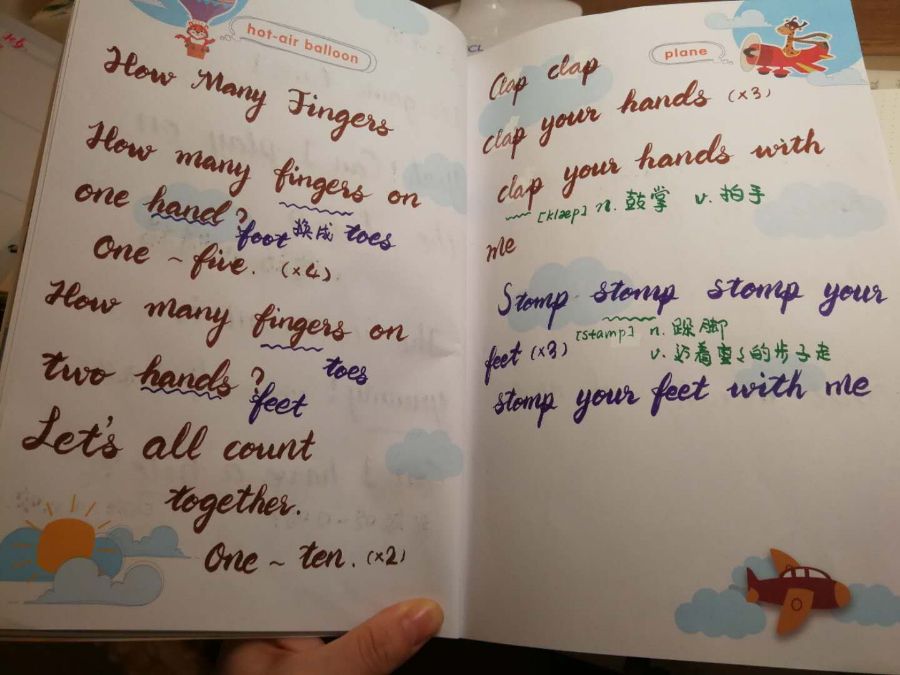 hot-air balloon
How Many Fingers
How many fingers on
one hand?
foot 换成 toes
One ~ five. (×4)
How many fingers on
toes
two hands?
feet
Let's all count
together.
One ~ ten. (×2)
plane
Clap clap
clap your hands (×3)
clap your hands with
[klæp] n. 鼓掌 v. 拍手
me
Stomp stomp stomp your
[stamp] n. 跺脚
feet (×3)
v. 迈着重重的步子走
stomp your feet with me